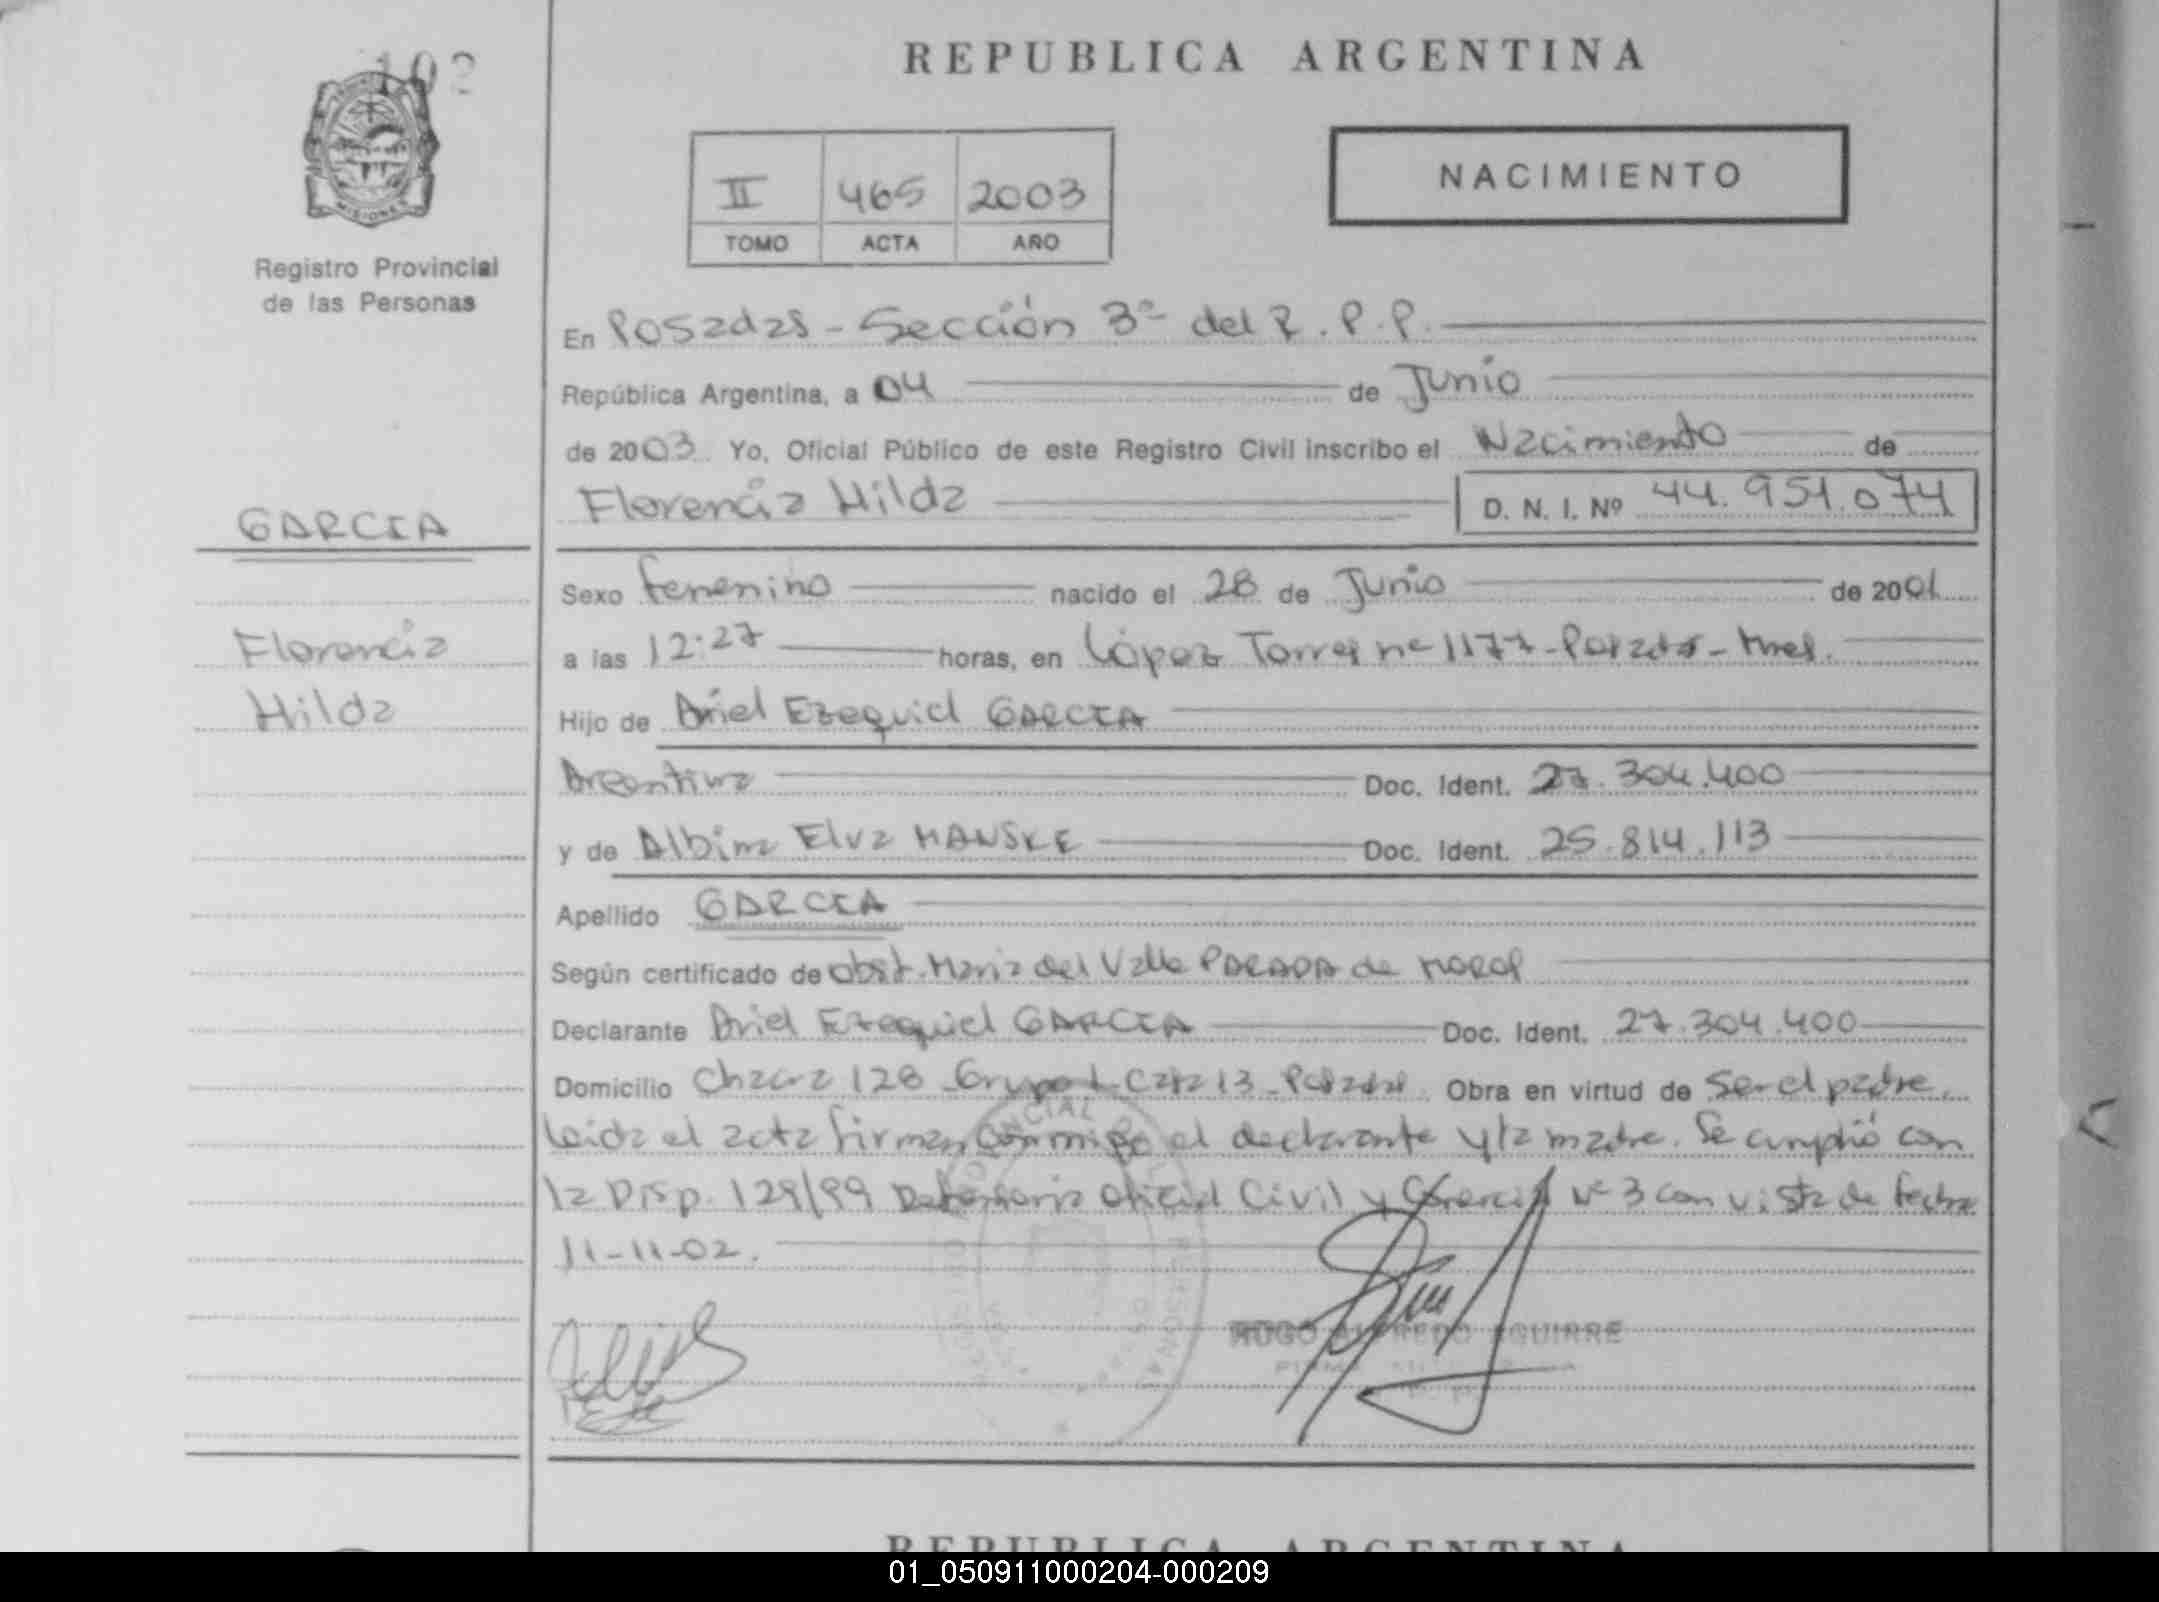 102
REPUBLICA ARGENTINA
MISIONES
Registro Provincial
de las Personas
II 465 2003
TOMO ACTA AÑO
NACIMIENTO
En Posadas - Sección 3ª del R.P.P.
República Argentina, a 04 de Junio
de 2003 Yo, Oficial Público de este Registro Civil inscribo el Nacimiento de
Florencia Hilda D. N. I. Nº 44.951.074
GARCIA
Florencia
Hilda
Sexo femenino nacido el 28 de Junio de 2001
a las 12:27 horas, en López Torres nº 1177 - Posadas - Mnes.
Hijo de Ariel Ezequiel GARCIA
Argentina Doc. Ident. 27.304.400
y de Albina Elva HANSKE Doc. Ident. 25.814.113
Apellido GARCIA
Según certificado de Obst. Maria del Valle PARADA de
Declarante Ariel Ezequiel GARCIA Doc. Ident. 27.304.400
Domicilio Chacra 128 Grupo 1 Casa 13 - Posadas Obra en virtud de ser el padre.
Leida el acta firman conmigo el declarante y la madre. Se cumplió con
la Disp. 129/99 Defensoria Oficial Civil y Comercial Nº 3 con vista de fecha
11-11-02.
HUGO ALFREDO AGUIRRE
REPUBLICA ARGENTINA
01_050911000204-000209